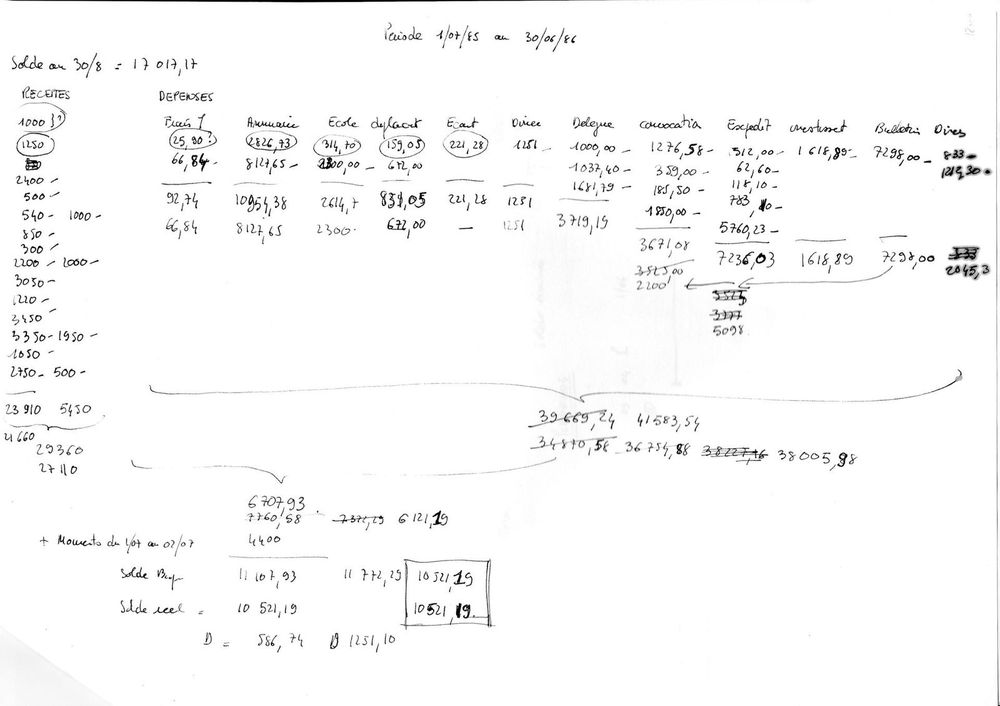 Période 1/07/85 au 30/06/86
Solde au 30/8 = 17 017,17
RECETTES DEPENSES
1000 }? Annuaire Ecole deplacmt Ecart Divers Delegue convocatio Expedit investissmt Bulletin Divers
1250 25,90? 2826,73 314,70 159,05 221,28 1251 1000,00 - 1276,58 - 512,00 - 1618,89 - 7298,00 - 833 -
66,84 - 8127,65 - 2300,00 - 672,00 - 1037,40 - 359,00 - 62,60 - 1212,30
2400 - 1681,79 - 185,50 - 118,10 -
500 - 92,74 10954,38 2614,7 831,05 221,28 1251 1850,00 - 783,10 -
540 - 1000 - 66,84 8127,65 2300 - 672,00 — 1251 3719,19 5760,23 -
850 -
300 - 3671,08 7236,03 1618,89 7298,00
2200 - 2000 - 3525,00 2045,3
3050 - 2200
1220 - 3525
3450 - 3377
3350 - 1950 - 5098
1050 -
2750 - 500 -
23 910 5450 39 669,24 41 583,54
21 660 34 870,58 36 754,88 38227,76 38 005,98
29360
27110
6707,93
7760,58 7372,29 6121,19
+ Moments du 1/07 au 02/07 4400
Solde Banq 11 107,93 11 772,29 10 521,19
Solde reel = 10 521,19 10 521,19
D = 586,74 D 1251,10